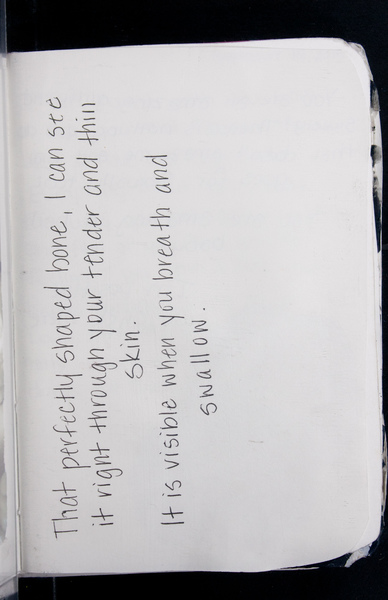 That perfectly shaped bone, I can see
it right through your tender and thin
skin.
It is visible when you breath and
swallow.